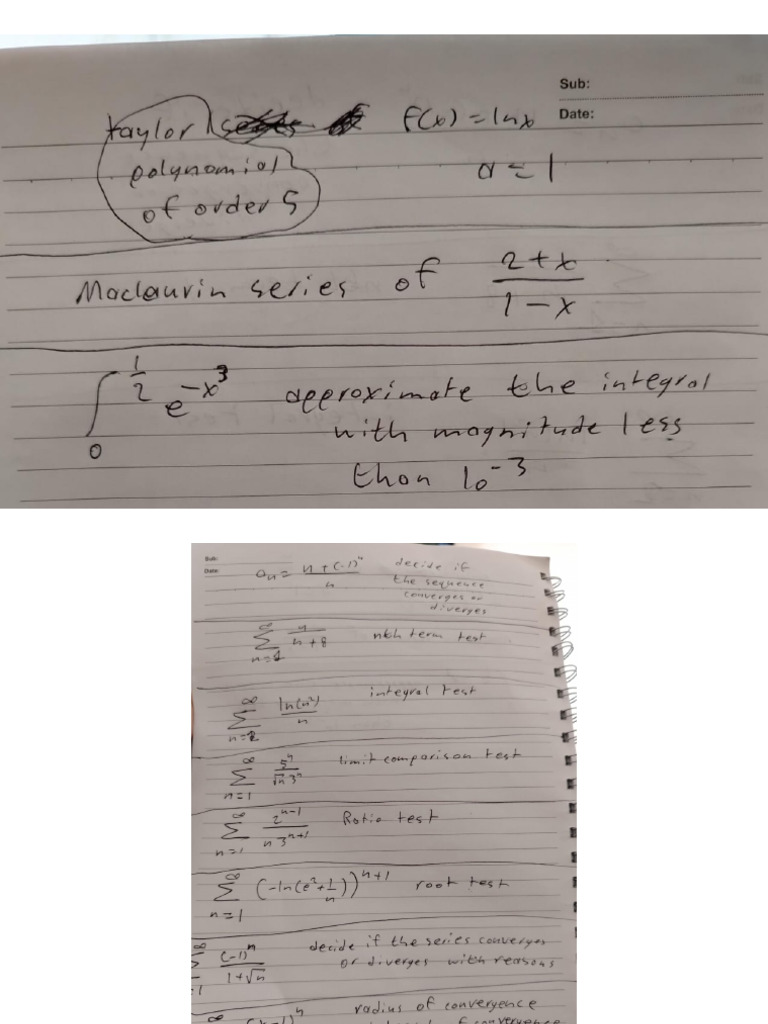 Sub:
taylor f(x) = lnx Date:
polynomial a = 1
of order 5
Maclaurin series of (2+x)/(1-x)
∫_0^{1/2} e^{-x^3} approximate the integral
with magnitude less
than 10^{-3}
Sub:
Date:
a_n = (n + (-1)^n)/n decide if
the sequence
converges or
diverges
∑_{n=1}^∞ n/(n+8) nth term test
∑_{n=2}^∞ ln(n^2)/n integral test
∑_{n=1}^∞ 5^n/(√n 3^n) limit comparison test
∑_{n=1}^∞ 2^{n-1}/(n 3^{n+1}) Ratio test
∑_{n=1}^∞ (-ln(e^2+1/n))^{n+1} root test
(-1)^n/(1+√n) decide if the series converges
or diverges with reasons
radius of convergence